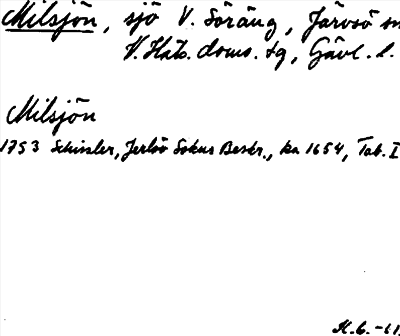 Milsjön, sjö V. Söräng, Järvsö sn
V. Häls. doms. tg, Gävl. l.
Milsjön
1753 Schissler, Jerlsö Sokns Beskr., ka 1654, Tab. I